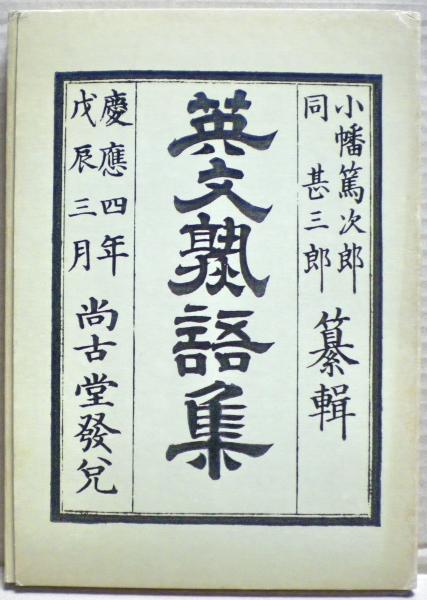 小幡篤次郎
同 甚三郎
纂輯
英文熟語集
慶應四年
戊辰三月
尚古堂發兌